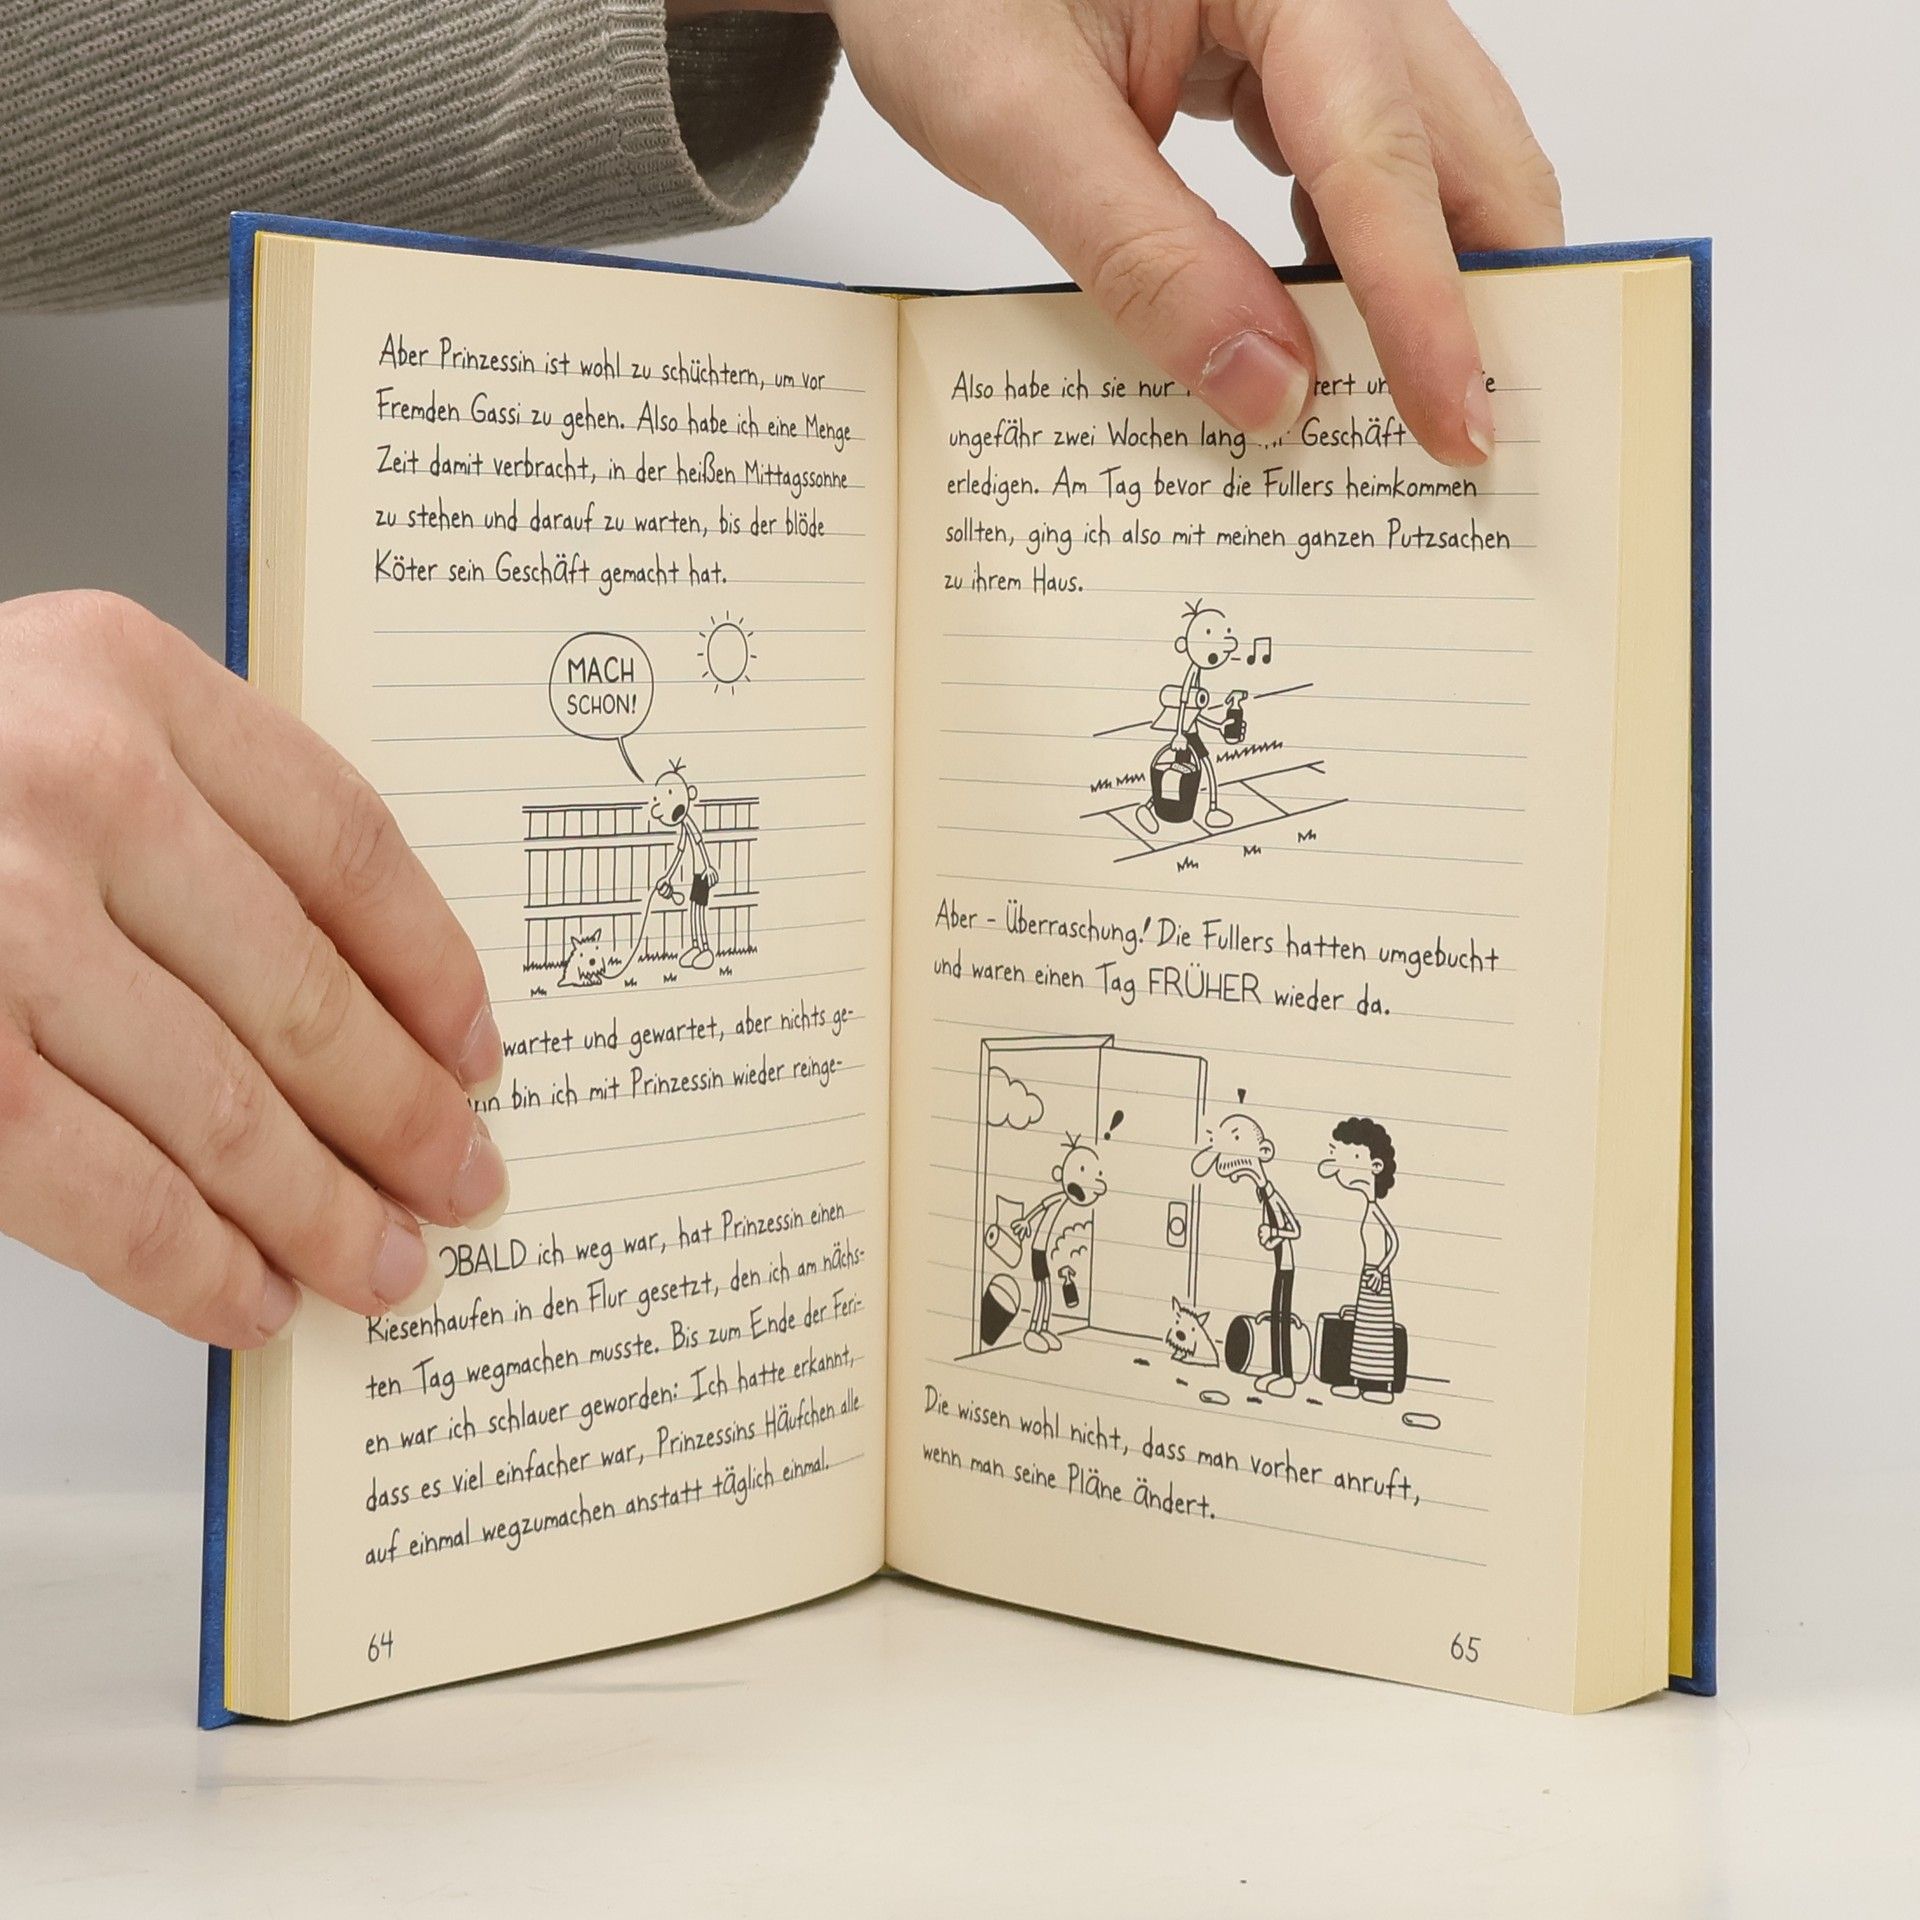 Aber Prinzessin ist wohl zu schüchtern, um vor
Fremden Gassi zu gehen. Also habe ich eine Menge
Zeit damit verbracht, in der heißen Mittagssonne
zu stehen und darauf zu warten, bis der blöde
Köter sein Geschäft gemacht hat.
MACH
SCHON!
wartet und gewartet, aber nichts ge-
bin ich mit Prinzessin wieder reinge-
ich weg war, hat Prinzessin einen
Riesenhaufen in den Flur gesetzt, den ich am nächs-
ten Tag wegmachen musste. Bis zum Ende der Feri-
en war ich schlauer geworden: Ich hatte erkannt,
dass es viel einfacher war, Prinzessins Häufchen alle
auf einmal wegzumachen anstatt täglich einmal.
64
Also habe ich sie nur
ungefähr zwei Wochen lang Geschäft
erledigen. Am Tag bevor die Fullers heimkommen
sollten, ging ich also mit meinen ganzen Putzsachen
zu ihrem Haus.
Aber - Überraschung! Die Fullers hatten umgebucht
und waren einen Tag FRÜHER wieder da.
!
Die wissen wohl nicht, dass man vorher anruft,
wenn man seine Pläne ändert.
65